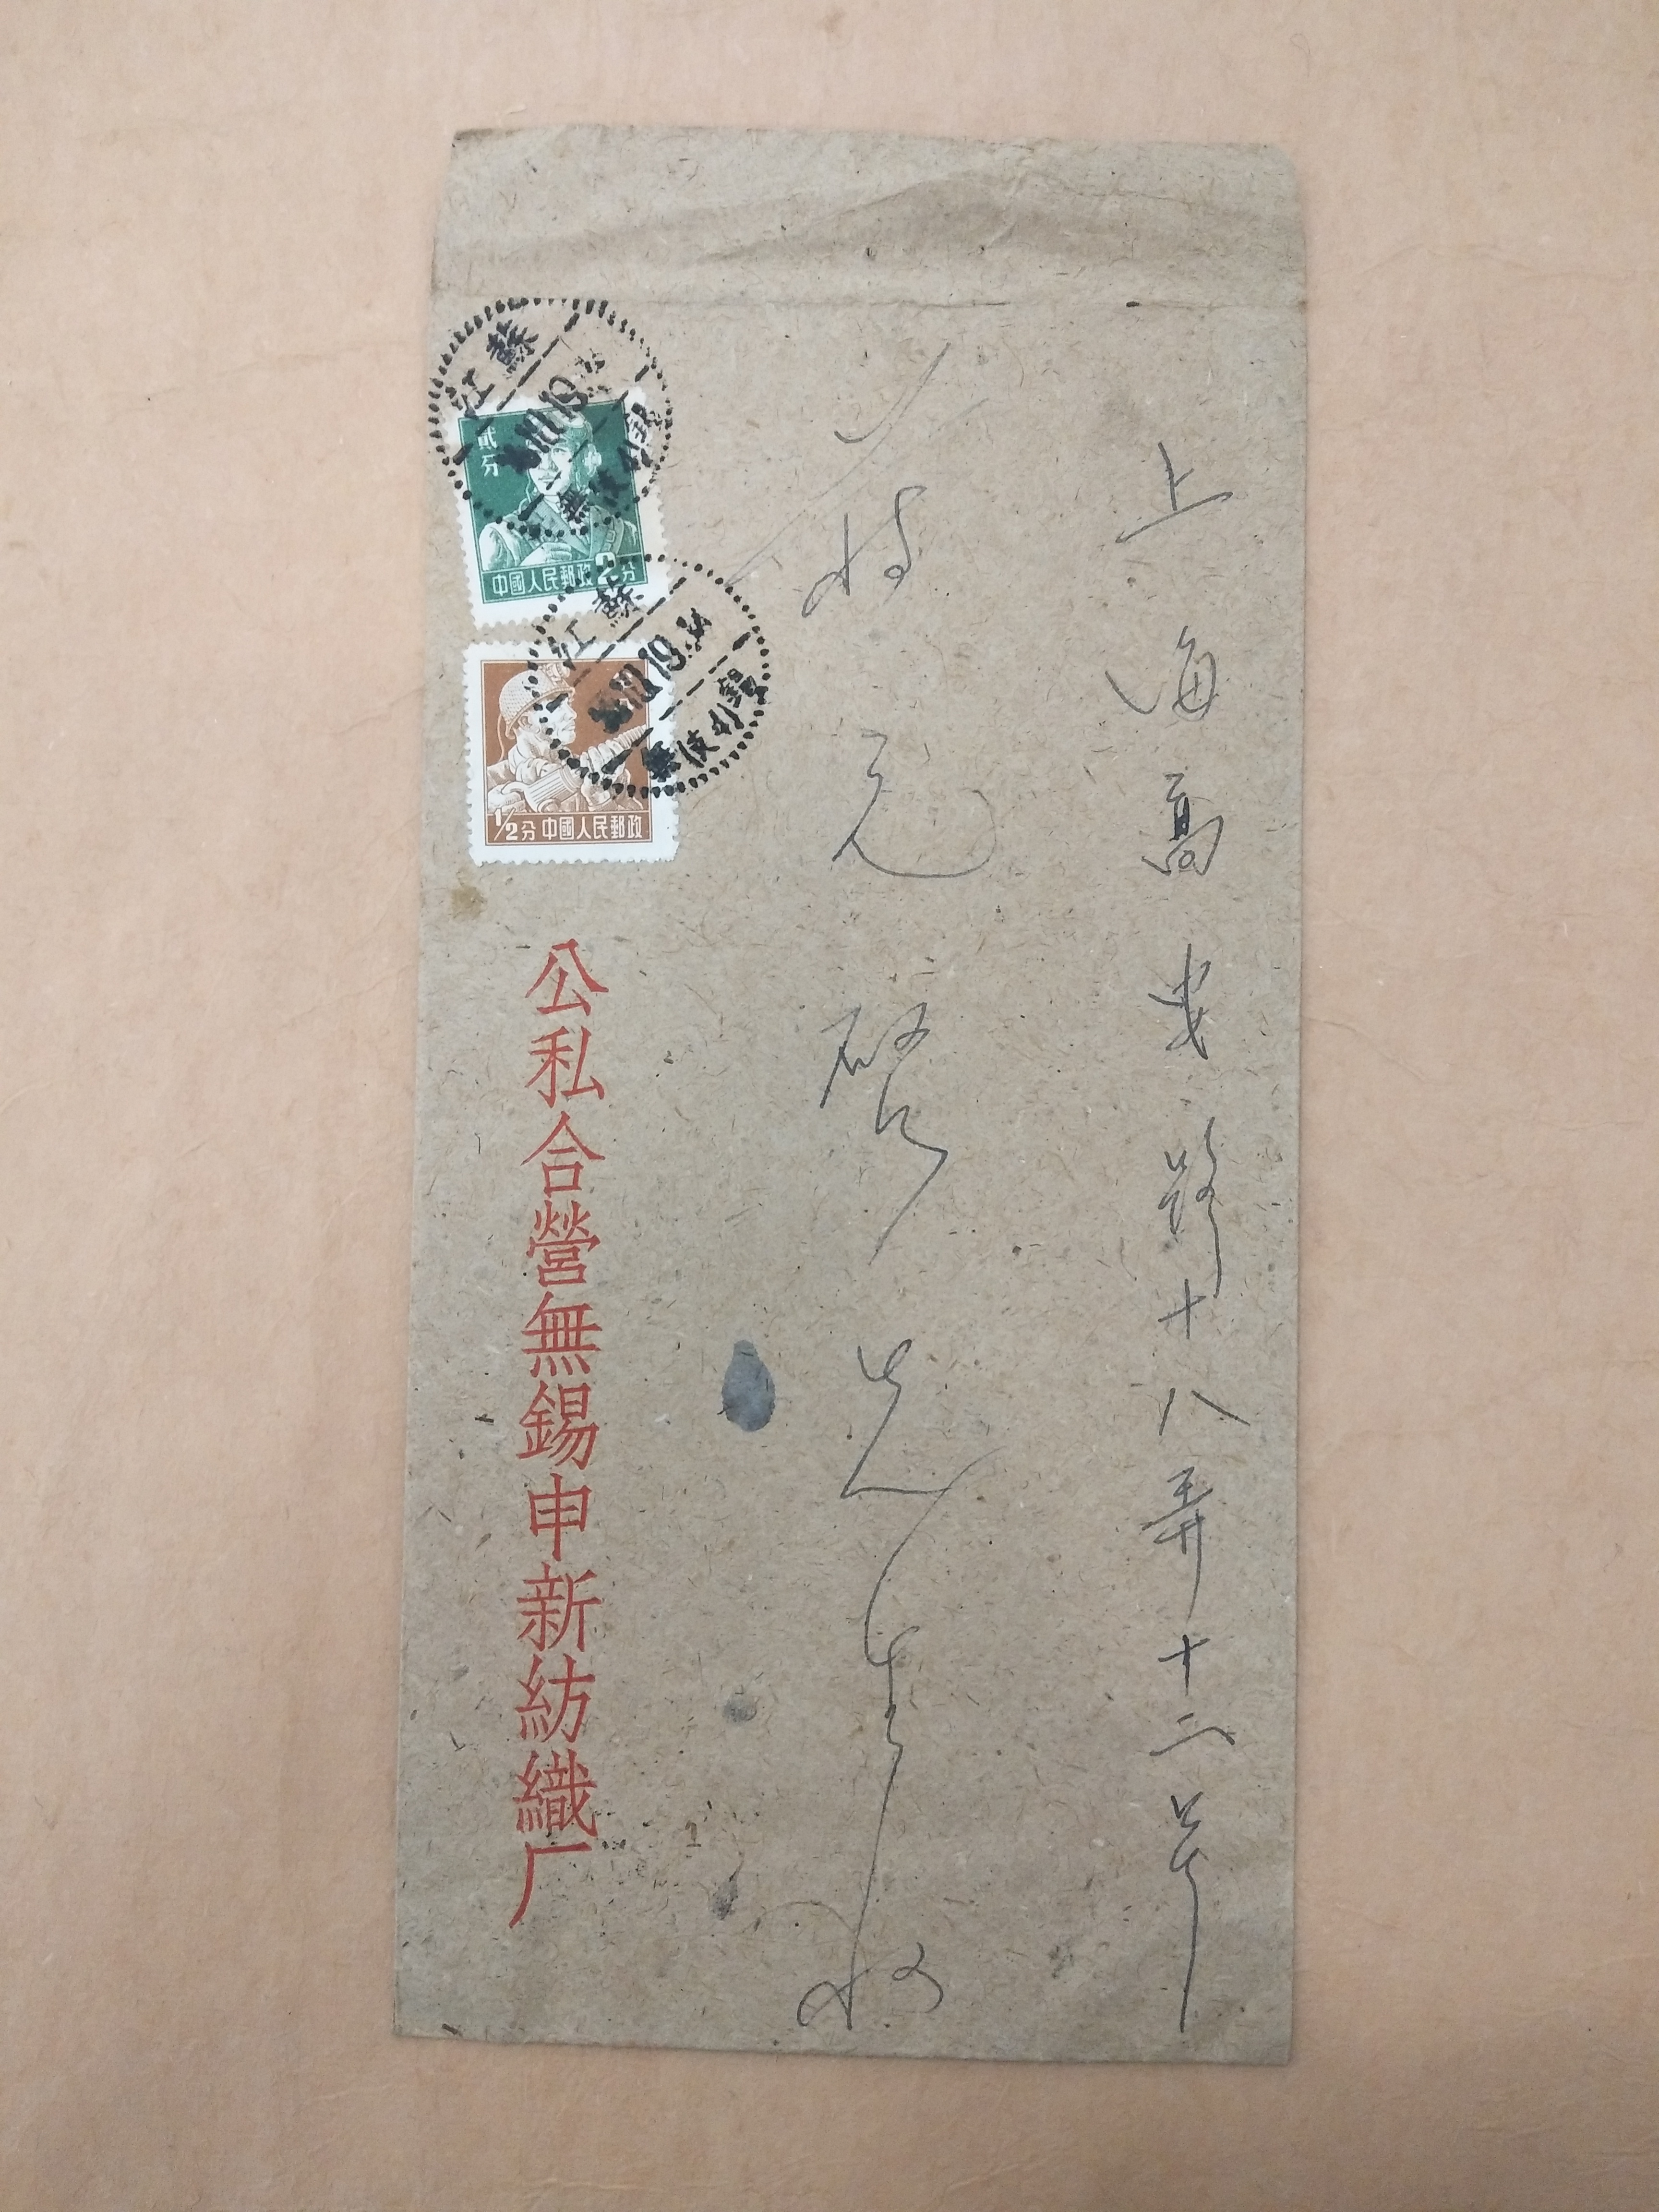 上海高安路十八弄十二号
先生收
江蘇
10.19
貳分
中國人民郵政2分
江蘇
10.19
無錫
1/2分中國人民郵政
公私合營無錫申新紡織厂